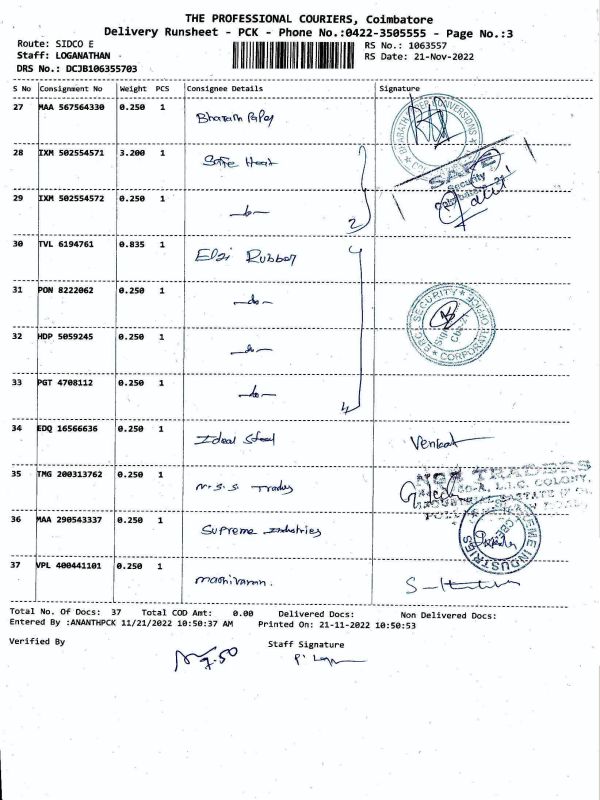 THE PROFESSIONAL COURIERS, Coimbatore
Delivery Runsheet - PCK - Phone No.:0422-3505555 - Page No.:3
Route: SIDCO E RS No.: 1063557
Staff: LOGANATHAN RS Date: 21-Nov-2022
DRS No.: DCJB106355703
S No Consignment No Weight PCS Consignee Details Signature
27 MAA 567564330 0.250 1 Bharath
28 IXM 502554571 3.200 1 Safe Heat
29 IXM 502554572 0.250 1 -do- 2
SAFE
Security
30 TVL 6194761 0.835 1 Elgi Rubber
31 PON 8222062 0.250 1 -do-
SECURITY
CORPORATE OFFICE
32 HDP 5059245 0.250 1 -do-
33 PGT 4708112 0.250 1 -do- 4
34 EDQ 16566636 0.250 1 Ideal Steel Venkat
35 TMG 200313762 0.250 1 N.S.S Trades
TRADES
L.I.C. COLONY,
36 MAA 290543337 0.250 1 Supreme Industries
SUPREME INDUSTRIES
CBE
37 VPL 400441101 0.250 1 Mathivanan.
Total No. Of Docs: 37 Total COD Amt: 0.00 Delivered Docs: Non Delivered Docs:
Entered By :ANANTHPCK 11/21/2022 10:50:37 AM Printed On: 21-11-2022 10:50:53
Verified By Staff Signature